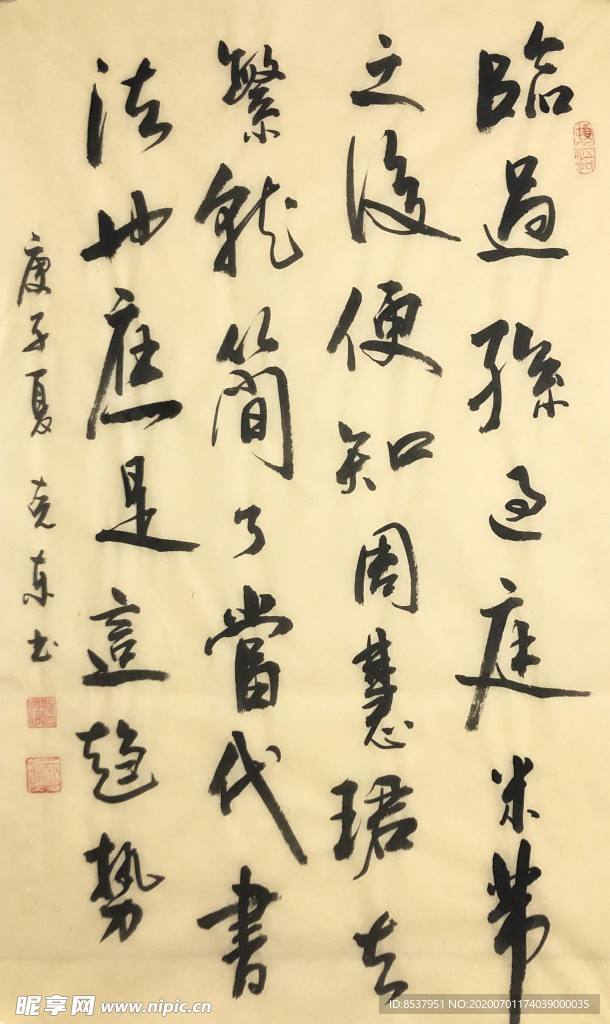 臨過孫過庭米芾
之後便知周慧珺去
繁就簡了當代書
法也應是這趨勢
庚子夏 克东书
昵享网 www.nipic.cn
ID:8537951 NO:20200701174039000035